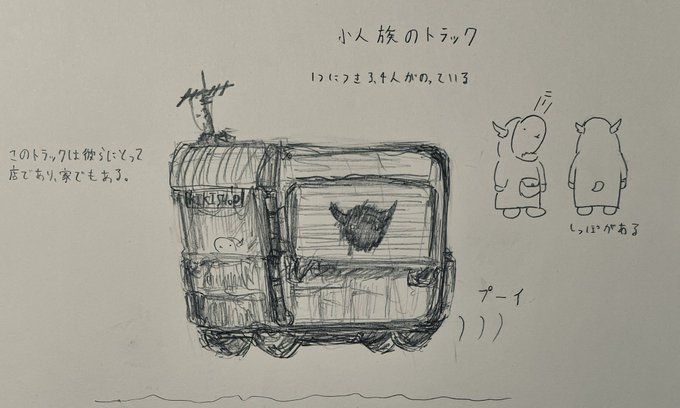 小人族のトラック
1つにつき3,4人がのっている
このトラックは彼らにとって
店であり、家でもある。
KIKISHOP!
しっぽがある
プーイ